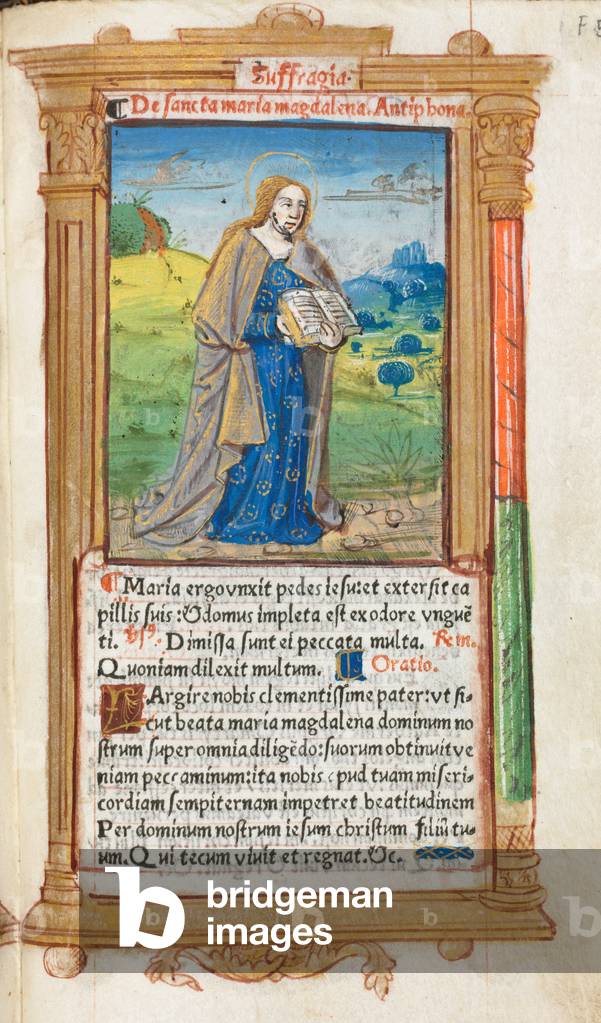 F 5
Suffragia.
¶ De sancta maria magdalena. Antiphona.
¶ Maria ergo vnxit pedes iesu: et extersit ca
pillis suis: & domus impleta est ex odore vnguē
ti. Dimissa sunt ei peccata multa.
Quoniam dilexit multum. ¶ Oratio.
LArgire nobis clementissime pater: vt si-
cut beata maria magdalena dominum no
strum super omnia diligēdo: suorum obtinuit ve
niam peccaminum: ita nobis apud tuam miseri-
cordiam sempiternam impetret beatitudinem
Per dominum nostrum iesum christum filiū tu-
um. Qui tecum viuit et regnat. &c.
b bridgeman
images